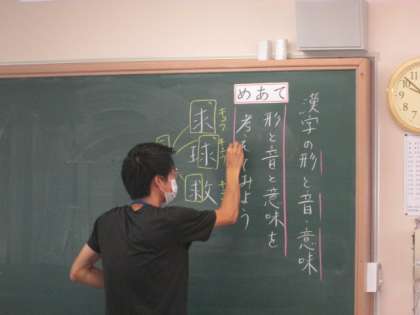 漢字の形と音・意味
めあて
形と音と意味を
考えてみよう
求
球
救